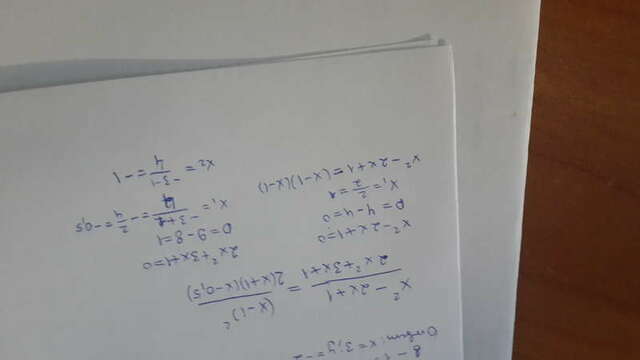 Ответ: x = 3; y = -2
x² - 2x + 1 / 2x² + 3x + 1 = (x-1)² / 2(x+1)(x-0,5)
x² - 2x + 1 = 0
D = 4 - 4 = 0
x₁ = 2/2 = 1
x² - 2x + 1 = (x-1)(x-1)
2x² + 3x + 1 = 0
D = 9 - 8 = 1
x₁ = -3+1 / 4 = -2/4 = -0,5
x₂ = -3-1 / 4 = -1